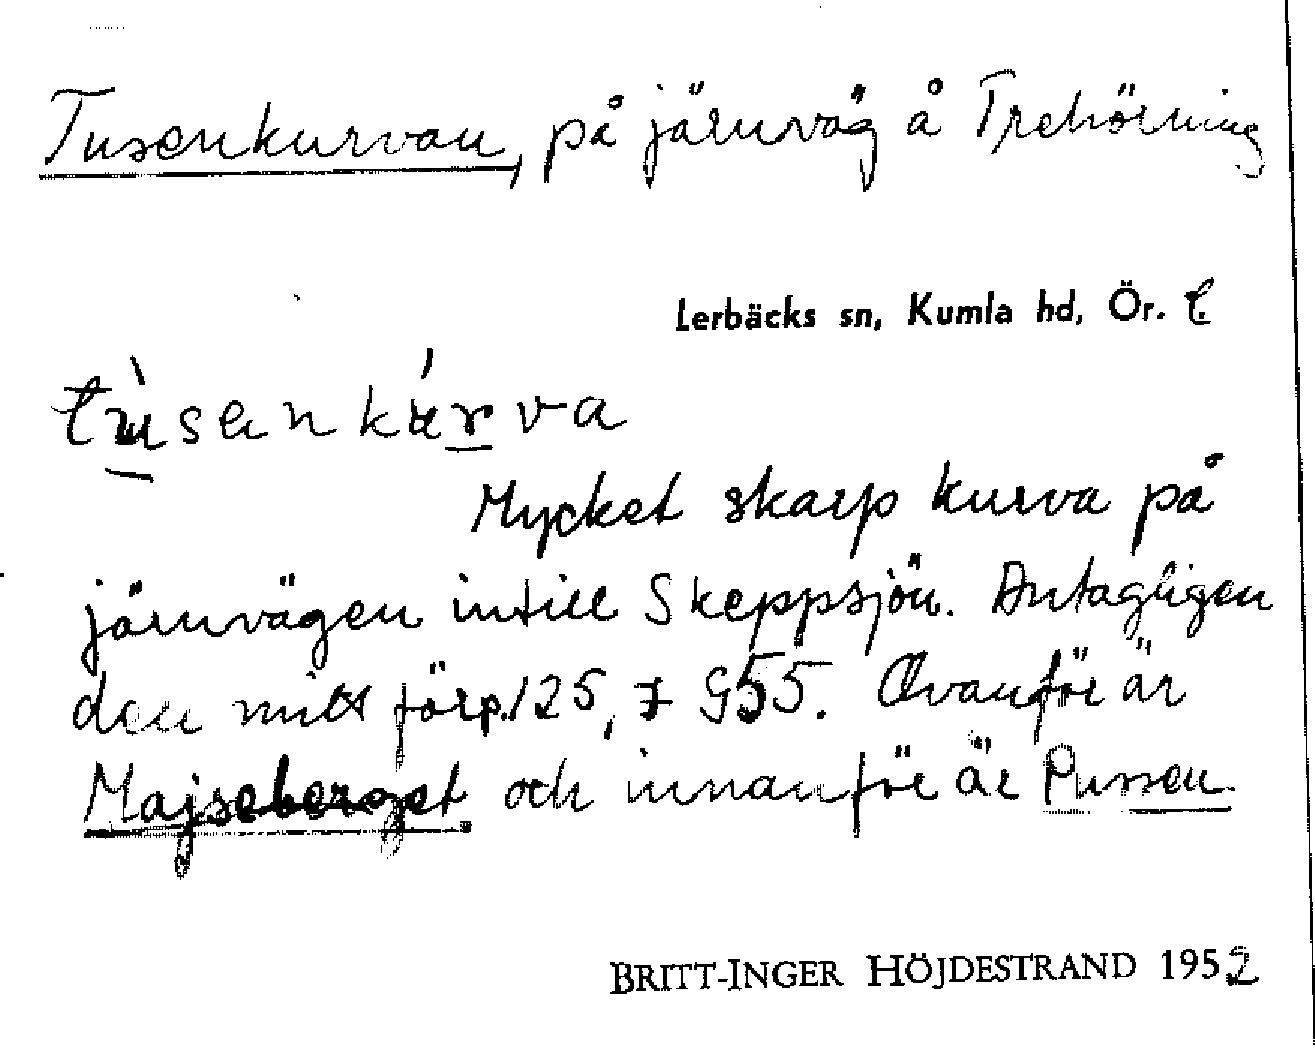 Tusenkurvan, på järnväg å Trehörning
Lerbäcks sn, Kumla hd, Ör. l.
tùsenkúrva
Mycket skarp kurva på
järnvägen intill Skeppsjön. Antagligen
den mitt för p. 125, 7 G55. Ovanför är
Majseberget och innanför är Pussen.
BRITT-INGER HÖJDESTRAND 1952